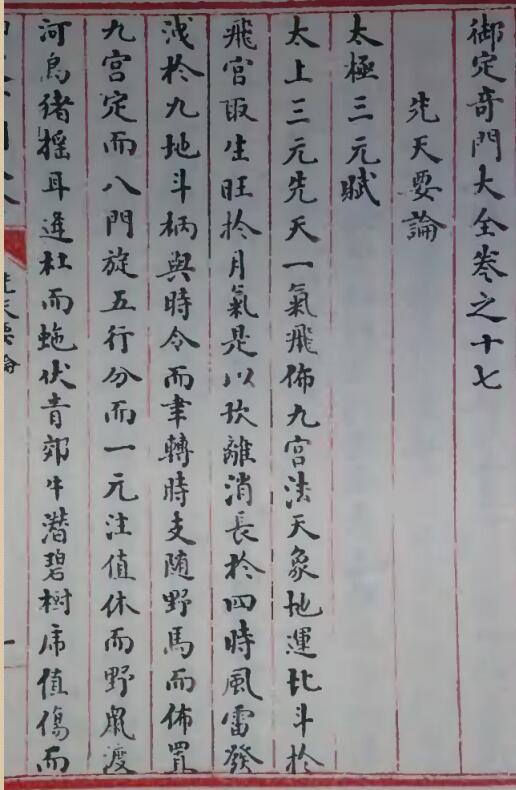 御定奇門大全卷之十七
先天要論
太極三元賦
太上三元先天一氣飛佈九宮法天象地運北斗於
飛宮取生旺於月氣是以坎離消長於四時風雷發
洩於九地斗柄與時令而聿轉時支随野馬而佈置
九宮定而八門旋五行分而一元注值休而野鼠渡
河鳥猪摇耳逢杜而虵伏青郊牛潛碧樹虎值傷而
先天要論
一